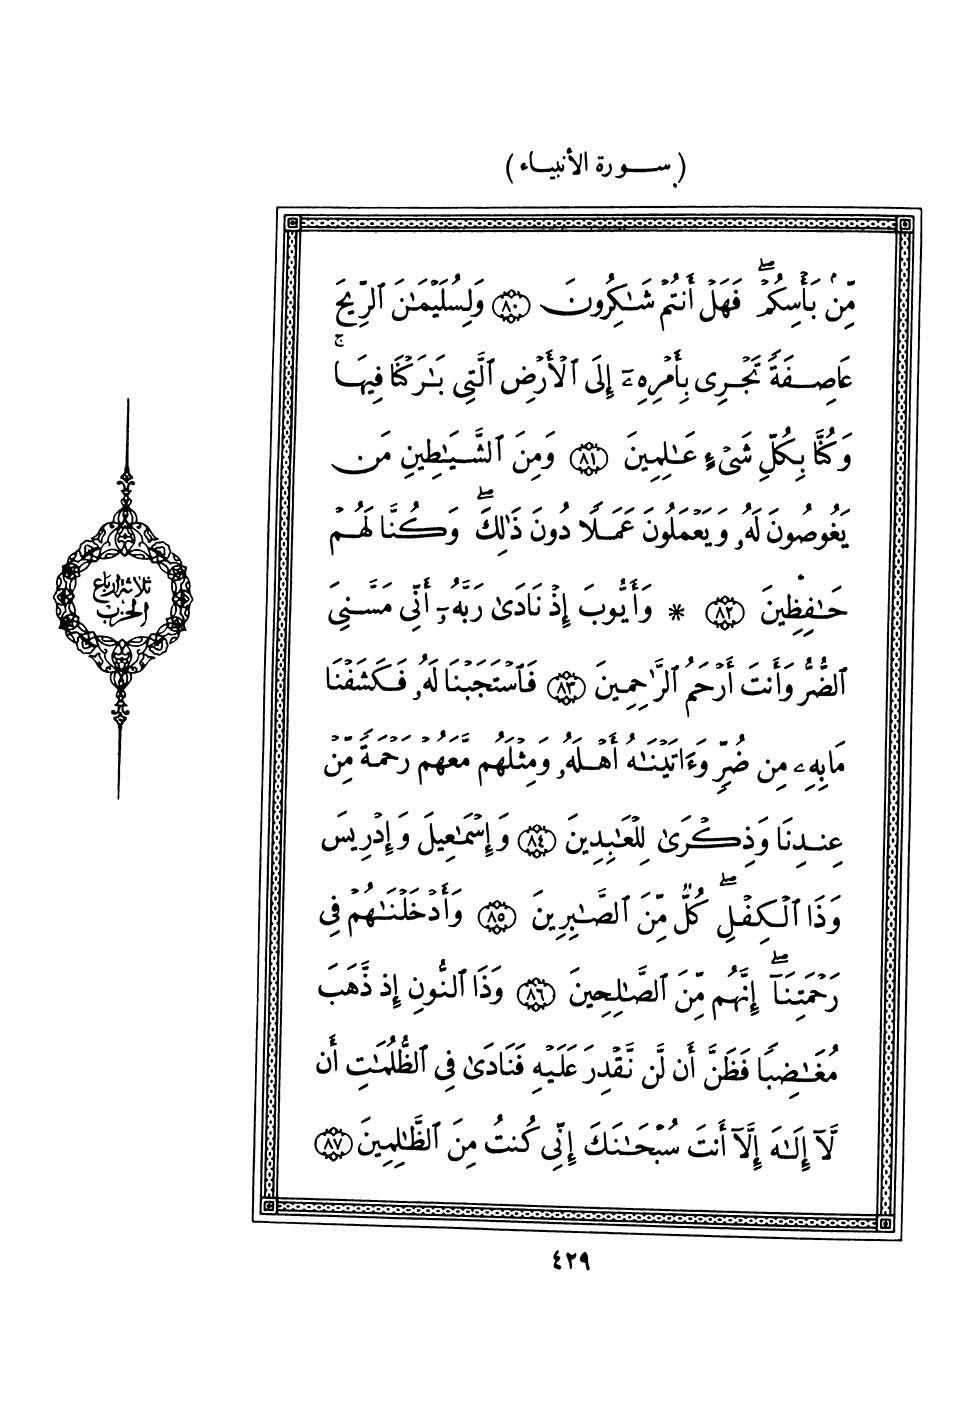 (سورة الأنبياء)
مِّنۢ بَأْسِكُمْ ۖ فَهَلْ أَنتُمْ شَـٰكِرُونَ ٨٠ وَلِسُلَيْمَـٰنَ ٱلرِّيحَ
عَاصِفَةً تَجْرِى بِأَمْرِهِۦٓ إِلَى ٱلْأَرْضِ ٱلَّتِى بَـٰرَكْنَا فِيهَا ۚ
وَكُنَّا بِكُلِّ شَىْءٍ عَـٰلِمِينَ ٨١ وَمِنَ ٱلشَّيَـٰطِينِ مَن
يَغُوصُونَ لَهُۥ وَيَعْمَلُونَ عَمَلًا دُونَ ذَٰلِكَ ۖ وَكُنَّا لَهُمْ
حَـٰفِظِينَ ٨٢ * وَأَيُّوبَ إِذْ نَادَىٰ رَبَّهُۥٓ أَنِّى مَسَّنِىَ
ٱلضُّرُّ وَأَنتَ أَرْحَمُ ٱلرَّٰحِمِينَ ٨٣ فَٱسْتَجَبْنَا لَهُۥ فَكَشَفْنَا
مَا بِهِۦ مِن ضُرٍّ وَءَاتَيْنَـٰهُ أَهْلَهُۥ وَمِثْلَهُم مَّعَهُمْ رَحْمَةً مِّنْ
عِندِنَا وَذِكْرَىٰ لِلْعَـٰبِدِينَ ٨٤ وَإِسْمَـٰعِيلَ وَإِدْرِيسَ
وَذَا ٱلْكِفْلِ ۖ كُلٌّ مِّنَ ٱلصَّـٰبِرِينَ ٨٥ وَأَدْخَلْنَـٰهُمْ فِى
رَحْمَتِنَآ ۖ إِنَّهُم مِّنَ ٱلصَّـٰلِحِينَ ٨٦ وَذَا ٱلنُّونِ إِذ ذَّهَبَ
مُغَـٰضِبًا فَظَنَّ أَن لَّن نَّقْدِرَ عَلَيْهِ فَنَادَىٰ فِى ٱلظُّلُمَـٰتِ أَن
لَّآ إِلَـٰهَ إِلَّآ أَنتَ سُبْحَـٰنَكَ إِنِّى كُنتُ مِنَ ٱلظَّـٰلِمِينَ ٨٧
ثلاثة أرباع
الحزب
٤٢٩